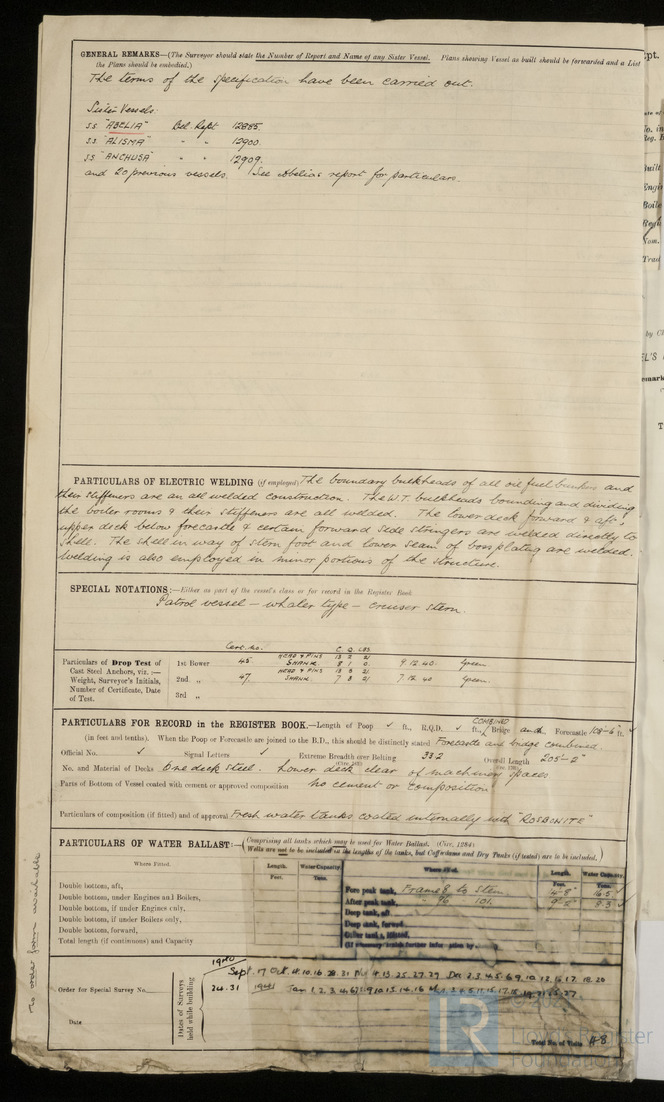 GENERAL REMARKS—(The Surveyor should state the Number of Report and Name of any Sister Vessel. Plans showing Vessel as built should be forwarded and a List
the Plans should be embodied.)
The terms of the specification have been carried out.
Sister Vessels:
s.s. "ABELIA" Bel. Rept 12885.
s.s. "ALISMA" " " 12900.
s.s. "ANCHUSA" " " 12909.
and 20 previous vessels. See Abelia's report for particulars.
PARTICULARS OF ELECTRIC WELDING (if employed) The boundary bulkheads of all oil fuel bunkers and
their stiffeners are an all welded construction. The W.T. bulkheads bounding and dividing
the boiler rooms & their stiffeners are all welded. The lower deck forward & aft,
upper deck below forecastle & certain forward side stringers are welded directly to
shell. The shell in way of stern foot and lower seam of boss plating are welded.
Welding is also employed in minor portions of the structure.
SPECIAL NOTATIONS:—Either as part of the vessel's class or for record in the Register Book
Patrol vessel – whaler type – cruiser stern.
Cert. no. C. Q. LBS
Particulars of Drop Test of
Cast Steel Anchors, viz. :—
Weight, Surveyor's Initials,
Number of Certificate, Date
of Test.
1st Bower 45. HEAD & PINS
SHANK 8 1 0. 9.12.40. Green
2nd " 47. HEAD & PINS
SHANK 7 3 21 7.12.40 Green
3rd "
PARTICULARS FOR RECORD in the REGISTER BOOK.—Length of Poop ✓ ft., R.Q.D. ✓ ft., COMBINED Bridge and Forecastle 108-6 ft.
(in feet and tenths). When the Poop or Forecastle are joined to the B.D., this should be distinctly stated Forecastle and bridge combined.
Official No. ✓ Signal Letters ✓ Extreme Breadth over Belting 33.2 Overall Length 205-2"
No. and Material of Decks One deck steel. Lower deck clear of machinery spaces
Parts of Bottom of Vessel coated with cement or approved composition No cement or composition
Particulars of composition (if fitted) and of approval Fresh water tanks coated internally with "ROSBONITE"
PARTICULARS OF WATER BALLAST:—(Comprising all tanks which may be used for Water Ballast. (Circ. 1284)
Wells are not to be included in the lengths of the tanks, but Cofferdams and Dry Tanks (if tested) are to be included.)
Where Fitted. Length. Water Capacity. Where fitted. Length. Water Capacity.
Feet. Tons. Feet. Tons.
Double bottoms, aft,
Double bottoms, under Engines and Boilers,
Double bottoms, if under Engines only,
Double bottoms, if under Boilers only,
Double bottoms, forward,
Total length (if continuous) and Capacity
Fore peak tank, Frame 8 to Stem 14'-8" 16.5 ✓
After peak tank, " 96 " 101. 9'-2" 8.3 ✓
Deep tank, aft
Deep tank, forward,
Other tanks, if fitted,
No order form available
Order for Special Survey No.
Date
Dates of Surveys
held while building
1940
Total No. of Visits 48
LR
Lloyd's Register
Foundation